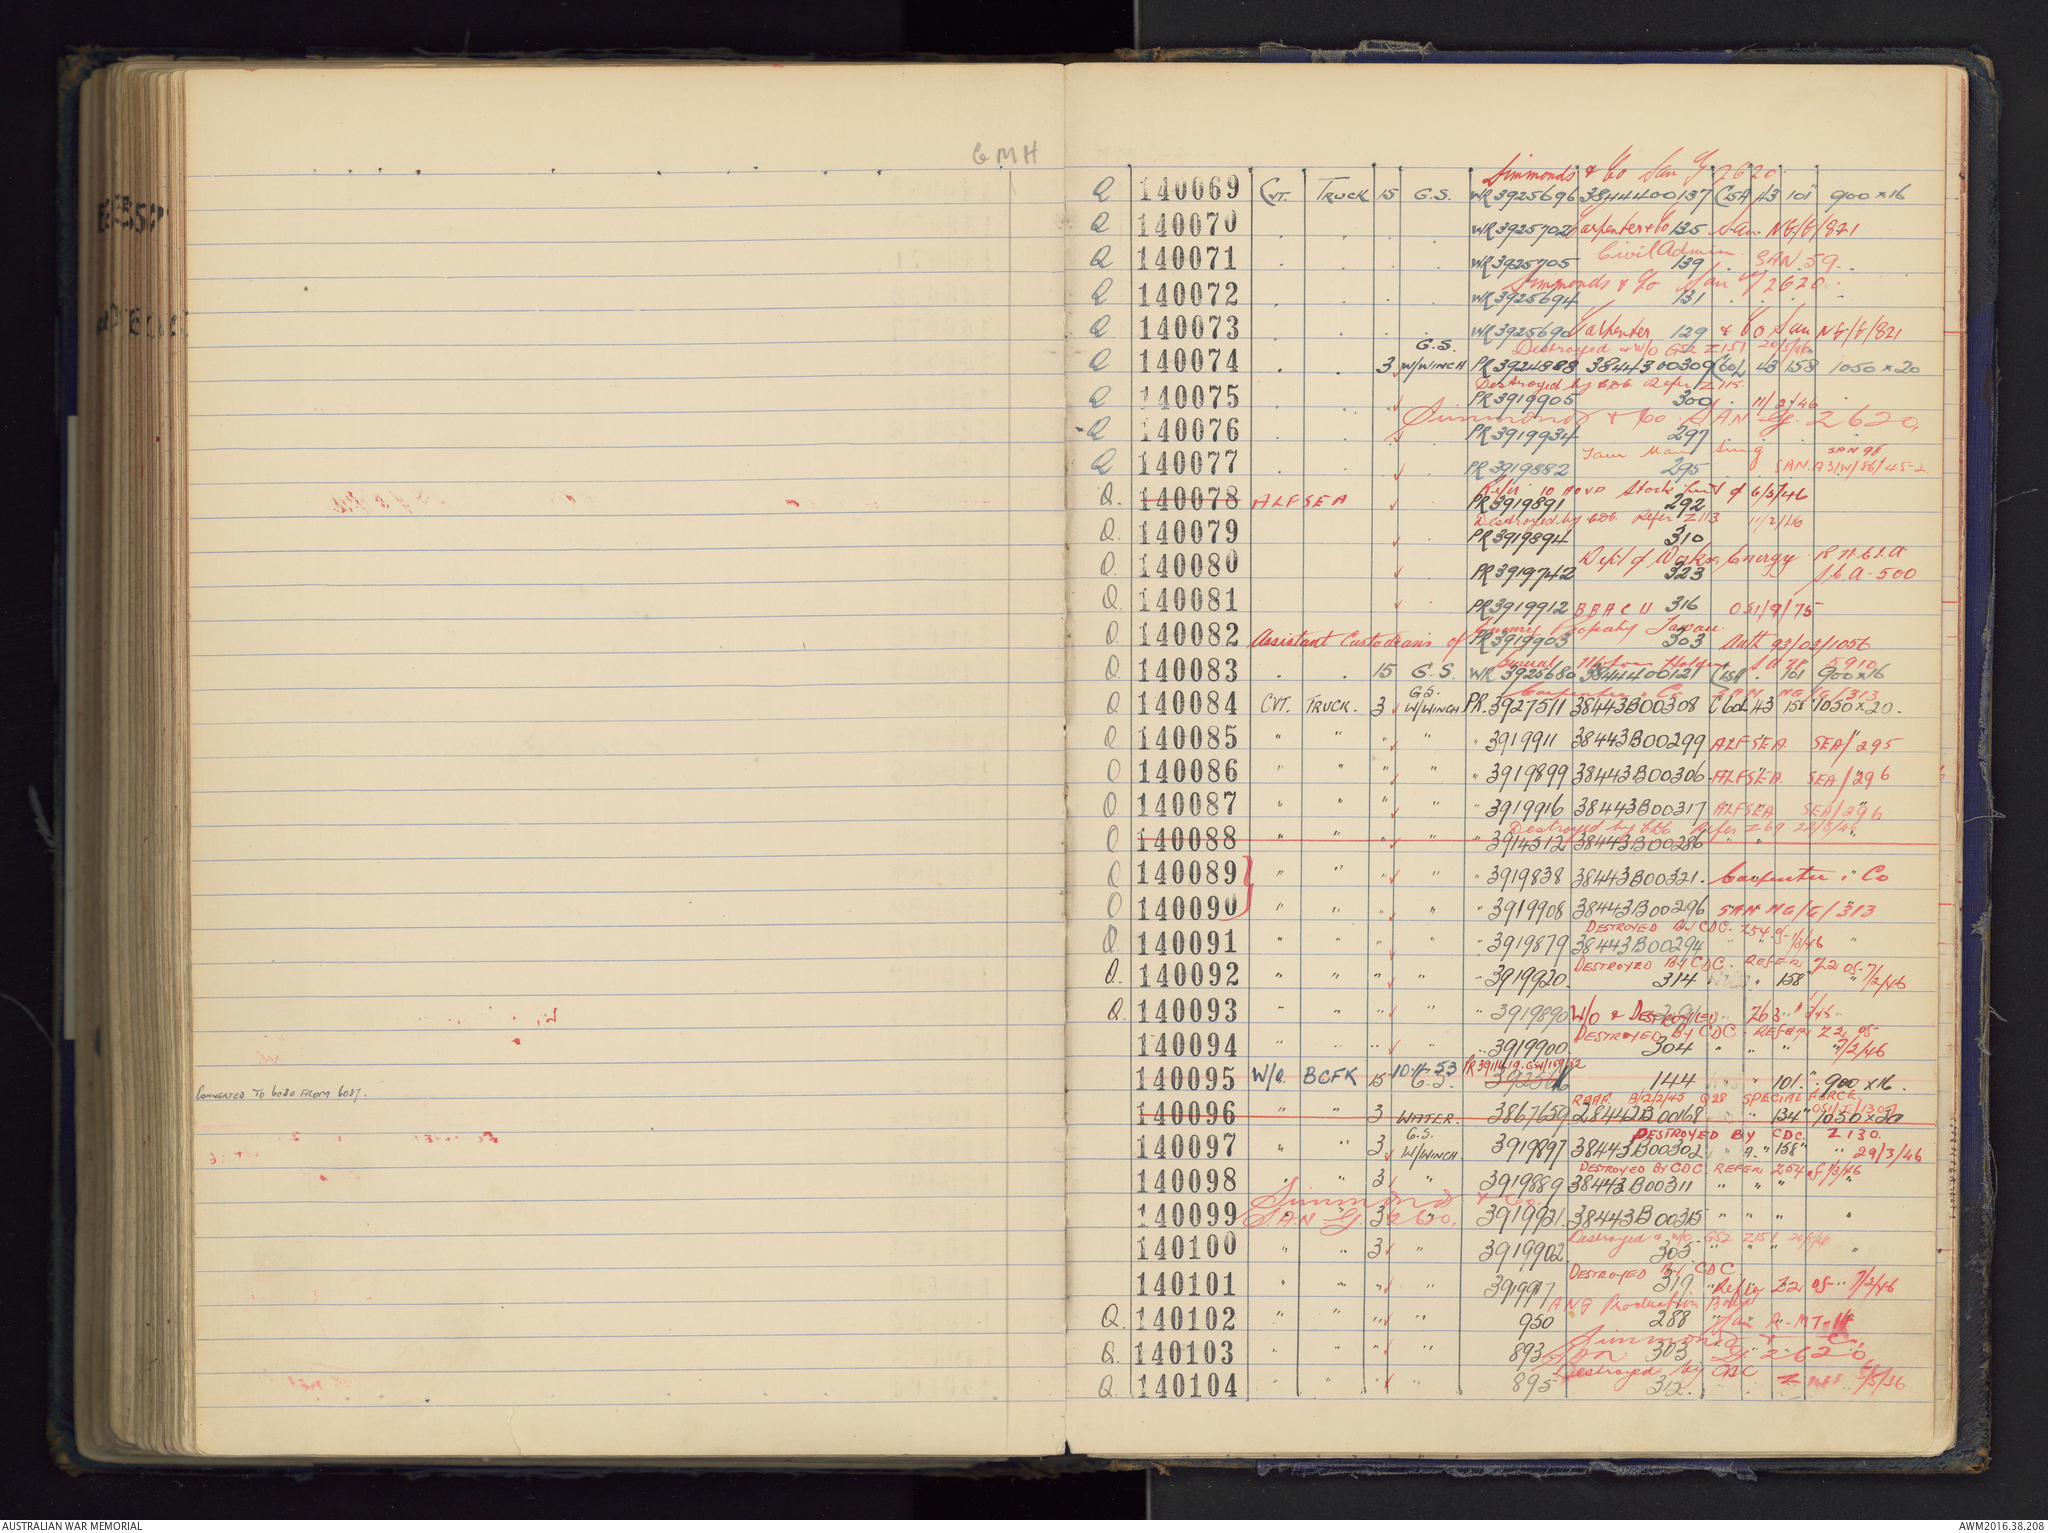 GMH
CONVERTED TO 6030 FROM 6037.
Simmonds & Co San G 2620
Q 140069 CVT. TRUCK 15 G.S. WR 3925696 3844400137 C15A 43 101" 900 x 16
Q 140070 WR 3925702 Carpenter & Co 135 San NG/G/821
Civil Admin SAN 59
Q 140071 WR 3925705 139
Simmonds & Co San G 2620
Q 140072 WR 3925694 131
Q 140073 WR 3925690 Carpenter 129 & Co San NG/G/821
Destroyed & W/O G52 Z151 20/5/46
Q 140074 3 G.S. W/WINCH PR 3924888 3844300309 C60L 43 158 1050 x 20
Destroyed by CDC Refer Z115
Q 140075 PR 3919905 300 11/2/46
Simmonds & Co SAN G. 2620.
Q 140076 PR 3919934 297
SAN 98
Q 140077 PR 3919882 295 SAN. A31/W/86/45-2
Stock List of 6/3/46
Q. 140078 ALFSEA PR 3919891 292
Destroyed by CDC Refer Z113 11/2/46
Q. 140079 PR 3919894 310
Dept of Works, Energy
Q. 140080 PR 3919742 323 S.C.A. 500
Q. 140081 PR 3919912 BBACU 316 OS1/9/75
Enemy Property Tawau.
Q. 140082 Assistant Custodians of PR 3919903 303 Auth 93/02/1056
General Motors Holden 5910
Q. 140083 15 G.S. WR 3925680 3844400121 C15A 101 900 x 16
Carpenter & Co SAN NG/G/313
Q 140084 CVT. TRUCK. 3 G.S. W/WINCH PR. 3927511 38443B00308 C60L 43 158 1050 x 20.
Q 140085 " " " " " 3919911 38443B00299 ALFSEA SEA/295
Q 140086 " " " " " 3919899 38443B00306 ALFSEA SEA/296
Q 140087 " " " " " 3919916 38443B00317 ALFSEA SEA/296
Destroyed by CDC Refer Z69
Q 140088 " " " " " 3914512 38443B00286 " "
Q 140089 " " " " " 3919838 38443B00321. Carpenter & Co
Q 140090 " " " " " 3919908 38443B00296 SAN NG/G/313
DESTROYED BY CDC. Z54 of 1/3/46
Q. 140091 " " " " " 3919879 38443B00294
DESTROYED BY CDC. REFER Z2 OF 7/2/46
Q. 140092 " " " " " 3919920. 314 158
Q. 140093 " " " " " 3919890 W/O & DESTROYED Z63
DESTROYED BY CDC. REFER Z2 OF 7/2/46
140094 " " " " " 3919900 304
140095 W/O. BCFK 15 10-11-53 G.S. 144 101" 900 x 16.
RAAF B/12/2/45 Q28 SPECIAL FORCE
140096 " " 3 WATER. 3867659 28442B00168 134" 1050 x 20
DESTROYED BY CDC. Z130.
140097 " " 3 G.S. W/WINCH. 3919897 38443B00302 158" 29/3/46
DESTROYED BY CDC REFER Z54 of 1/3/46
140098 " " 3 " 3919889 38443B00311
Simmonds & Co.
140099 SAN G 2620. 3 3919921. 38443B00315
Destroyed & W/O G52 Z151 20/5/46
140100 " " 3 " 3919902 305
DESTROYED BY CDC
140101 " " " " 3919917 319 Refer Z2 OF 7/2/46
ANG Production Board
Q. 140102 " " " " 950 288 San R-MT-14
Simmonds & Co.
Q. 140103 " " " " 893 San 303 G. 2620
Destroyed by CDC
Q. 140104 " " " " 895 312.
AUSTRALIAN WAR MEMORIAL
AWM2016.38.208